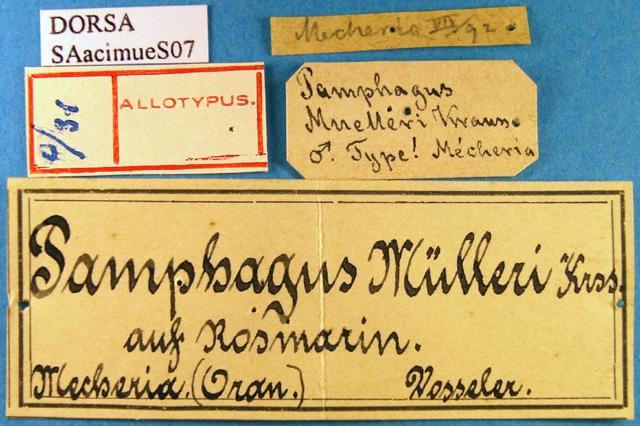 DORSA
SAacimueS07
Mecheria VII 92.
ALLOTYPUS.
Pamphagus
Muelleri Krauss.
♂. Type! Mécheria
Pamphagus Mülleri Krss.
auf Rosmarin.
Mecheria. (Oran.) Vosseler.